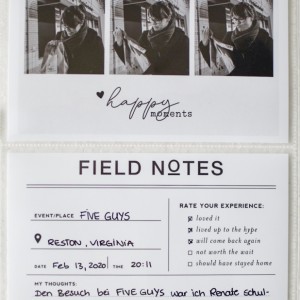 happy
moments
FIELD NOTES
EVENT/PLACE FIVE GUYS
RESTON, VIRGINIA
DATE Feb 13, 2020 TIME 20:11
RATE YOUR EXPERIENCE:
loved it
lived up to the hype
will come back again
not worth the wait
should have stayed home
MY THOUGHTS:
Den Besuch bei FIVE GUYS war ich Renate schul-